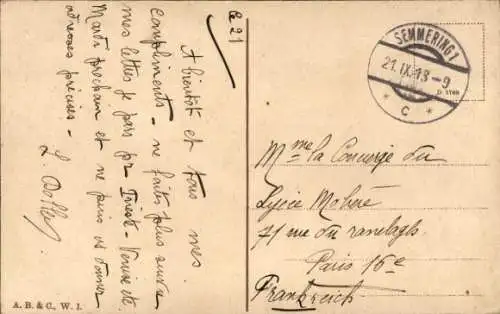 Le 21
A bientôt et tous mes
compliments - ne faites plus suivre
mes lettres je pars pr Trieste Venise etc
Mardi prochain et ne puis vs donner
adresses précises -
L.
A. B. & C., W. I.
SEMMERING 1
21.IX.13-9
* C *
Mme la Concierge du
Lycée Molière
71 rue du ranelagh
Paris 16e
Frankreich